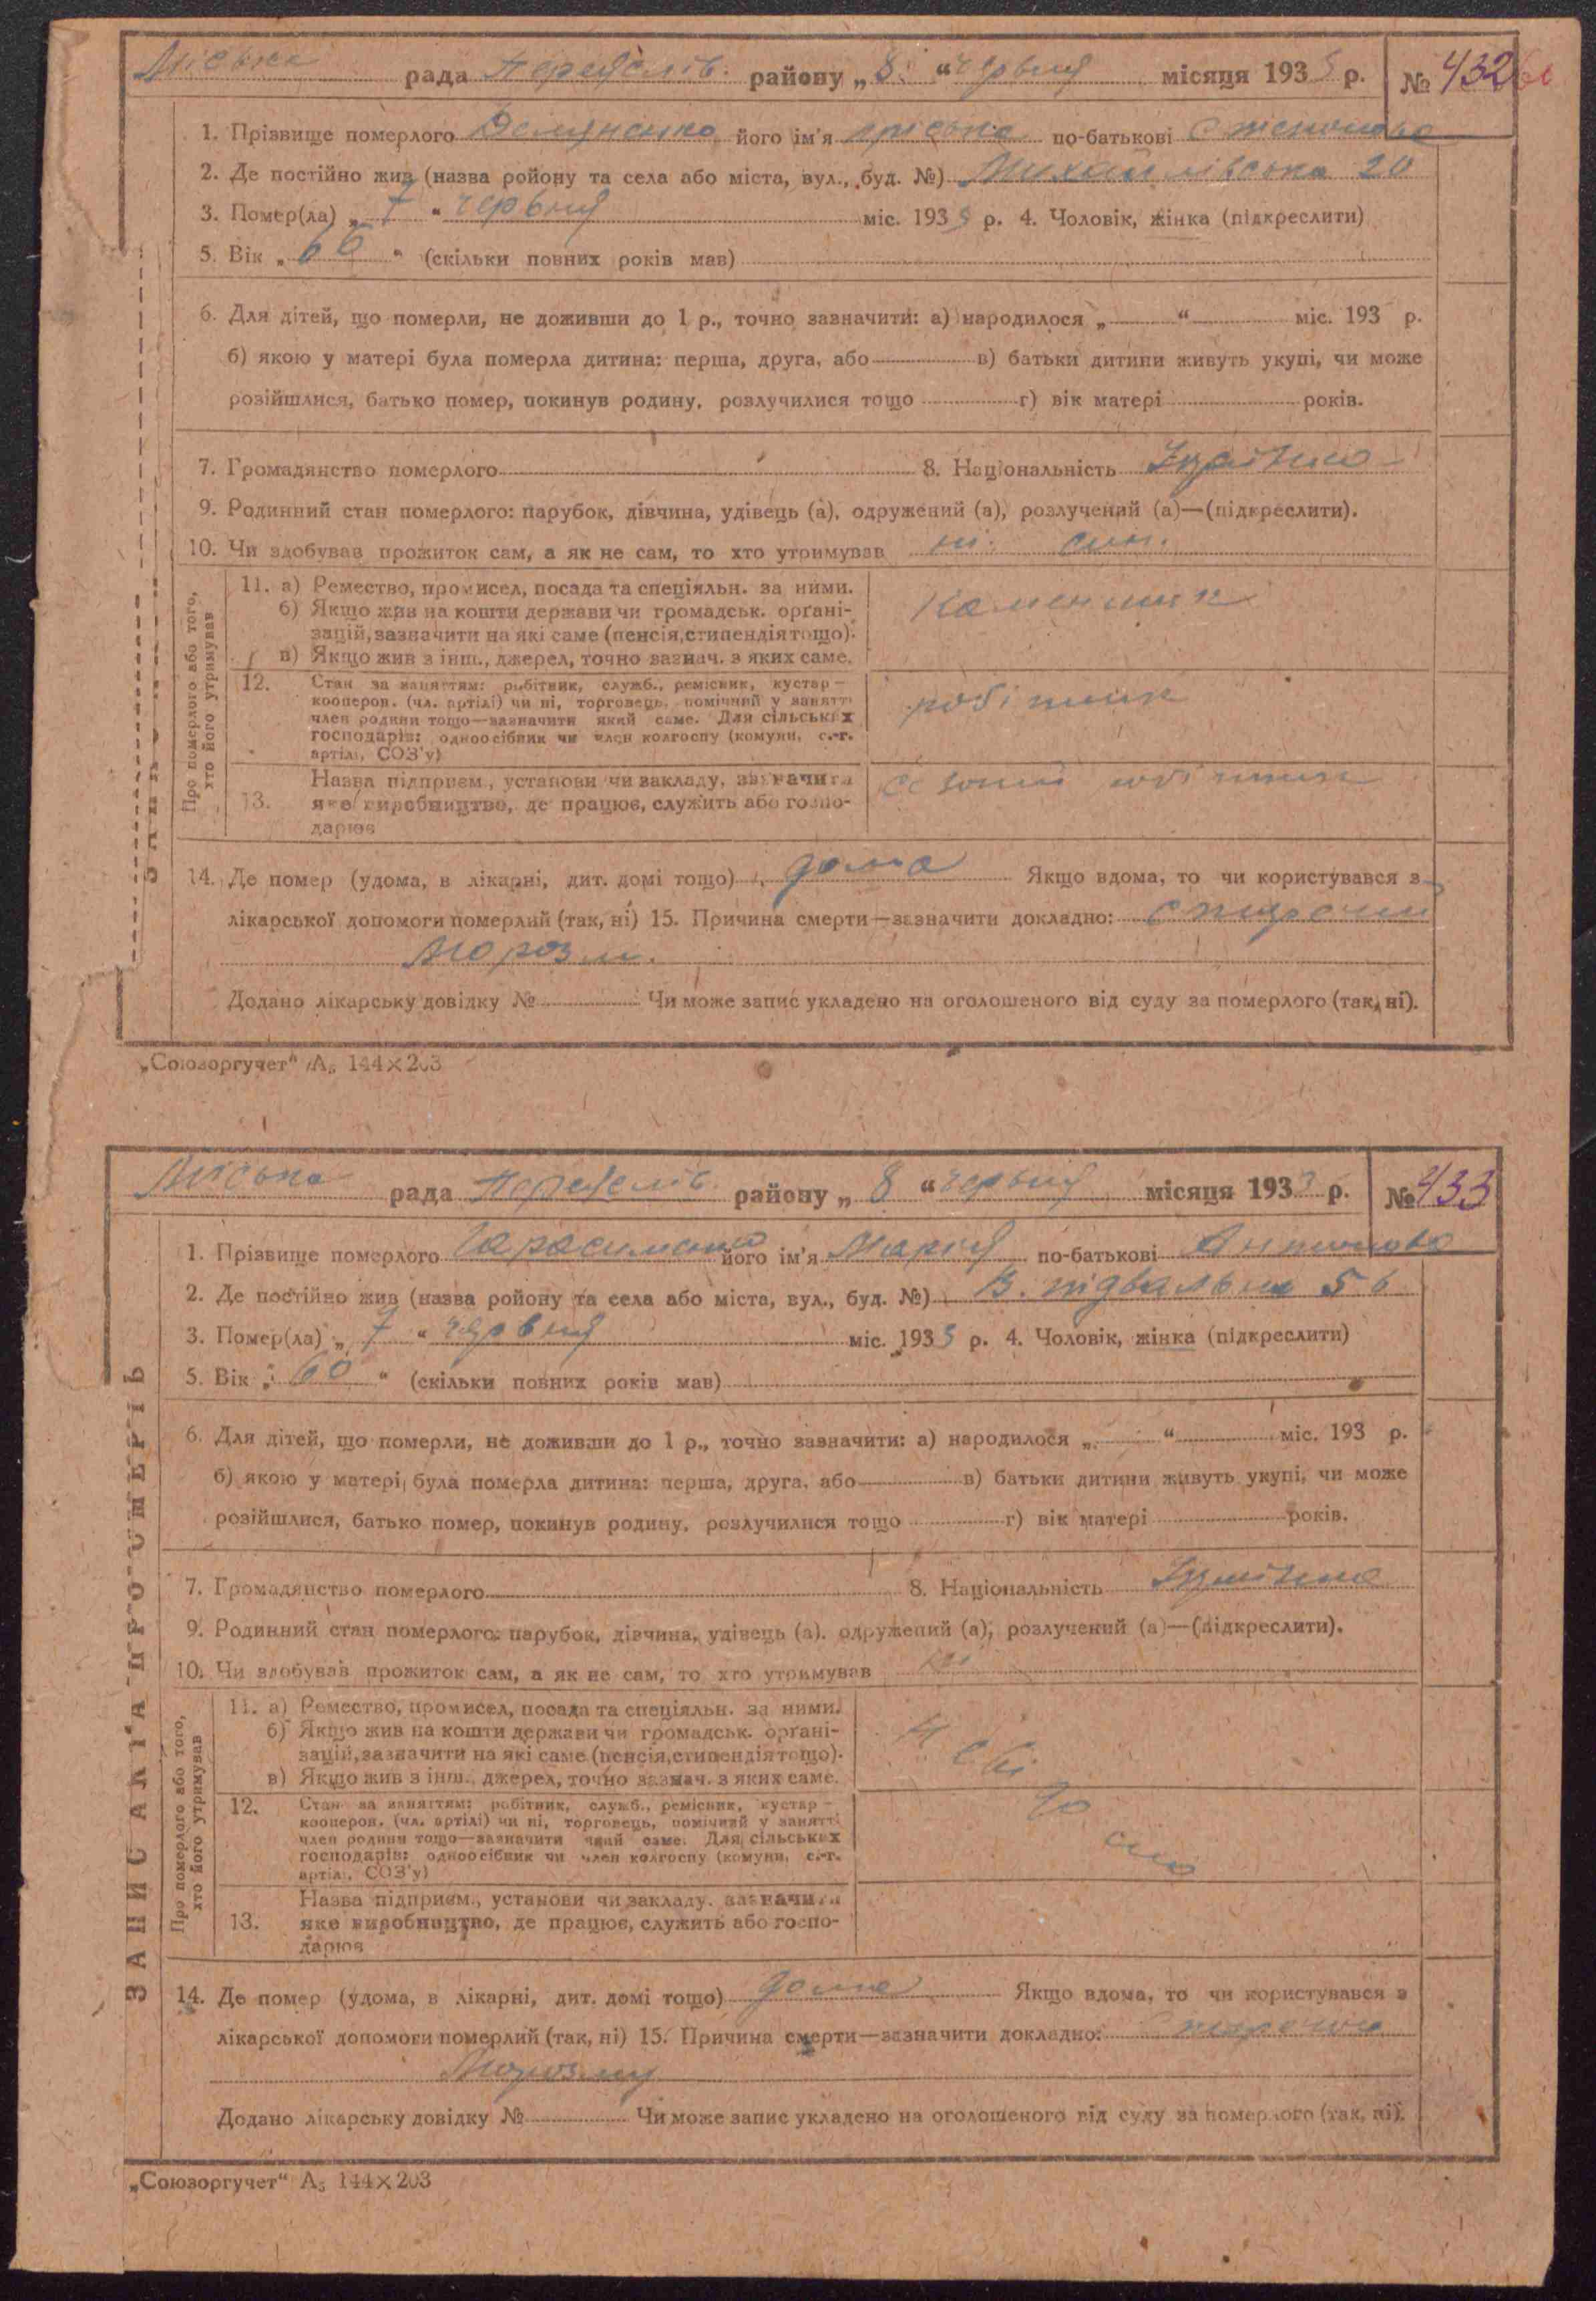 Міська рада Переяслів. району „ 8 “ червня місяця 1933 р. № 432
1. Прізвище померлого Демяненко його ім'я по-батькові
2. Де постійно жив (назва ройону та села або міста, вул., буд. №) Михайлівська 20
3. Помер(ла) „ 7 “ червня міс. 1933 р. 4. Чоловік, жінка (підкреслити)
5. Вік „ 66 “ (скільки повних років мав)
6. Для дітей, що померли, не доживши до 1 р., точно зазначити: а) народилося „ “ міс. 193 р.
б) якою у матері була померла дитина: перша, друга, або в) батьки дитини живуть укупі, чи може
розійшлися, батько помер, покинув родину, розлучилися тощо г) вік матері років.
7. Громадянство померлого 8. Національність
9. Родинний стан померлого: парубок, дівчина, удівець (а), одружений (а), розлучений (а)—(підкреслити).
10. Чи здобував прожиток сам, а як не сам, то хто утримував ні. син.
Про померлого або того,
хто його утримував
11. а) Ремество, промисел, посада та спеціяльн. за ними.
б) Якщо жив на кошти держави чи громадськ. орґані-
зацій, зазначити на які саме (пенсія, стипендія тощо).
в) Якщо жив з інш., джерел, точно зазнач. з яких саме.
Каменщик
12. Стан за заняттям: робітник, служб., ремісник, кустар—
кооперов. (чл. артілі) чи ні, торговець, помічний у занятті
член родини тощо—зазначити який саме. Для сільських
господарів: одноосібник чи член колгоспу (комуни, с.-г.
артілі, СОЗ'у)
робітник
13. Назва підприєм., установи чи закладу, зазначити
яке виробництво, де працює, служить або госпо-
дарює
робітник
14. Де помер (удома, в лікарні, дит. домі тощо) дома Якщо вдома, то чи користувався з
лікарської допомоги померлий (так, ні) 15. Причина смерти—зазначити докладно: старечий
морозм.
Додано лікарську довідку № Чи може запис укладено на оголошеного від суду за померлого (так, ні).
„Союзоргучет“ А₅ 144×203
ЗАПИС АКТА ПРО СМЕРТЬ
Міська рада Переяслів. району „ 8 “ червня місяця 1933 р. № 433
1. Прізвище померлого його ім'я Марія по-батькові Антонова
2. Де постійно жив (назва ройону та села або міста, вул., буд. №) В. підвальна 56
3. Помер(ла) „ 7 “ червня міс. 1933 р. 4. Чоловік, жінка (підкреслити)
5. Вік „ 60 “ (скільки повних років мав)
6. Для дітей, що померли, не доживши до 1 р., точно зазначити: а) народилося „ “ міс. 193 р.
б) якою у матері була померла дитина: перша, друга, або в) батьки дитини живуть укупі, чи може
розійшлися, батько помер, покинув родину, розлучилися тощо г) вік матері років.
7. Громадянство померлого 8. Національність
9. Родинний стан померлого: парубок, дівчина, удівець (а), одружений (а), розлучений (а)—(підкреслити).
10. Чи здобував прожиток сам, а як не сам, то хто утримував
Про померлого або того,
хто його утримував
11. а) Ремество, промисел, посада та спеціяльн. за ними.
б) Якщо жив на кошти держави чи громадськ. орґані-
зацій, зазначити на які саме (пенсія, стипендія тощо).
в) Якщо жив з інш., джерел, точно зазнач. з яких саме.
12. Стан за заняттям: робітник, служб., ремісник, кустар—
кооперов. (чл. артілі) чи ні, торговець, помічний у занятті
член родини тощо—зазначити який саме. Для сільських
господарів: одноосібник чи член колгоспу (комуни, с.-г.
артілі, СОЗ'у)
13. Назва підприєм., установи чи закладу, зазначити
яке виробництво, де працює, служить або госпо-
дарює
14. Де помер (удома, в лікарні, дит. домі тощо) дома Якщо вдома, то чи користувався з
лікарської допомоги померлий (так, ні) 15. Причина смерти—зазначити докладно:
Додано лікарську довідку № Чи може запис укладено на оголошеного від суду за померлого (так, ні).
„Союзоргучет“ А₅ 144×203